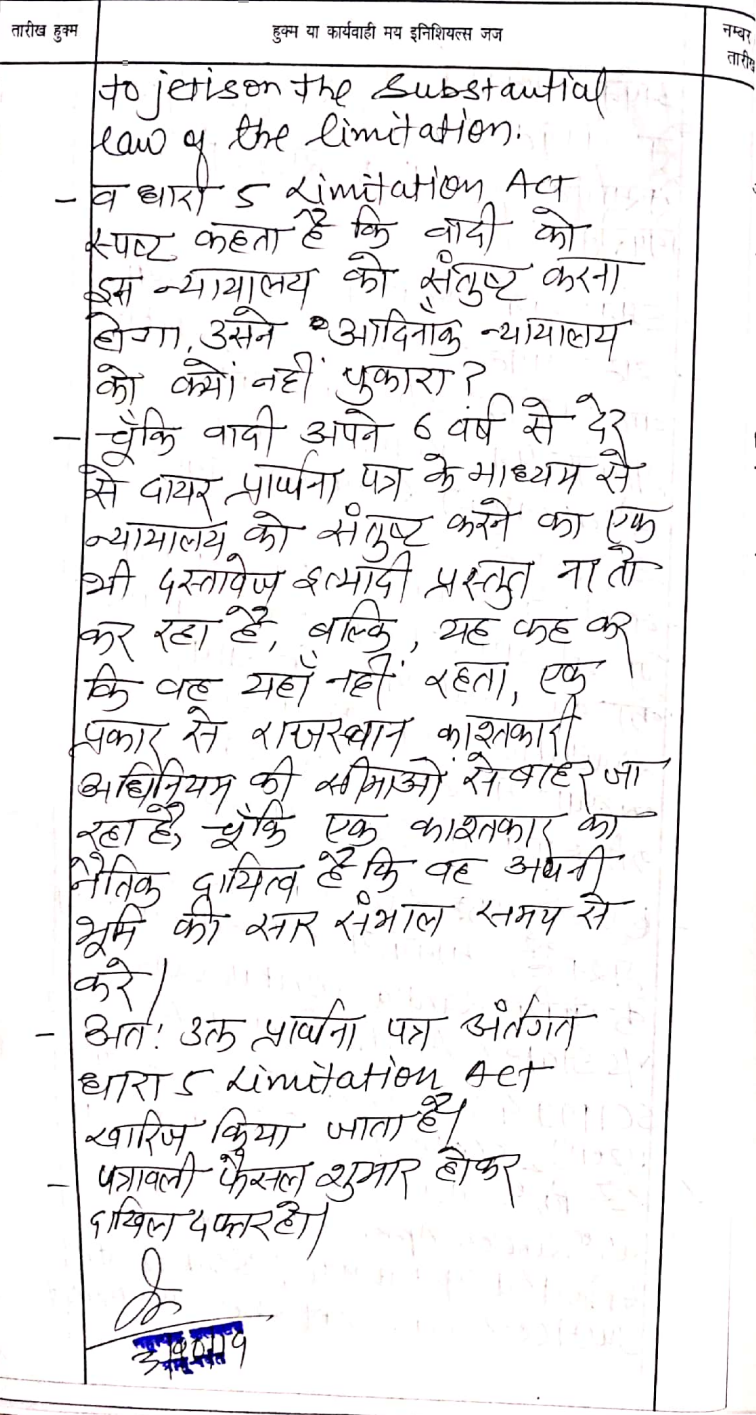 तारीख हुक्म
हुक्म या कार्यवाही मय इनिशियल्स जज
नम्बर
तारीख
to jetison the substantial
law of the limitation.
- व धारा 5 Limitation Act
स्पष्ट कहता है कि वादी को
इस न्यायालय को संतुष्ट करना
होगा, उसने आदिनाँक न्यायालय
को क्यों नहीं पुकारा?
- चूँकि वादी अपने 6 वर्ष से देर
से दायर प्रार्थना पत्र के माध्यम से
न्यायालय को संतुष्ट करने का एक
भी दस्तावेज इत्यादी प्रस्तुत ना तो
कर रहा है, बल्कि, यह कह कर
कि वह यहाँ नहीं रहता, एक
प्रकार से राजस्थान काश्तकारी
अधिनियम की सीमाओं से बाहर जा
रहा है, चूँकि एक काश्तकार का
नैतिक दायित्व है कि वह अपनी
भूमि की सार संभाल समय से
करे।
- अतः उक्त प्रार्थना पत्र अंर्तगत
धारा 5 Limitation Act
खारिज किया जाता है।
- पत्रावली फैसल शुमार होकर
दाखिल दफ्तर हो।